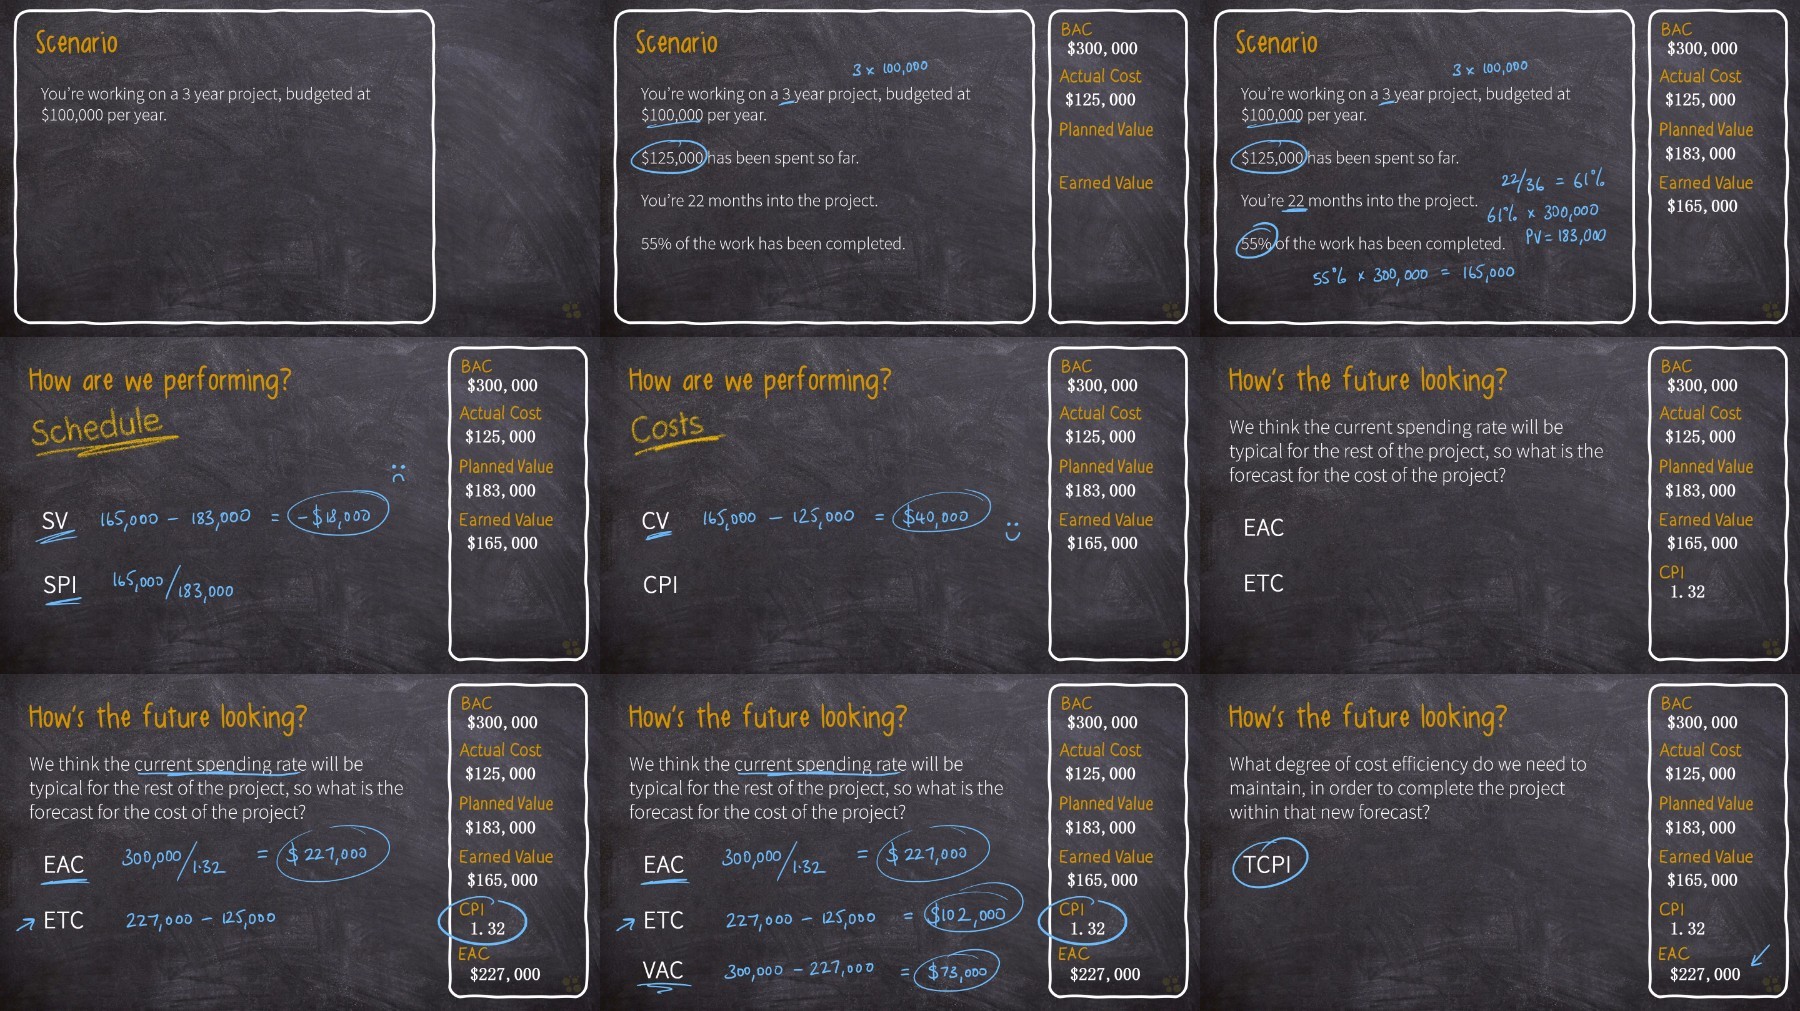 Scenario
You're working on a 3 year project, budgeted at
$100,000 per year.
Scenario
3 x 100,000
You're working on a 3 year project, budgeted at
$100,000 per year.
$125,000 has been spent so far.
You're 22 months into the project.
55% of the work has been completed.
BAC
$300,000
Actual Cost
$125,000
Planned Value
Earned Value
Scenario
3 x 100,000
You're working on a 3 year project, budgeted at
$100,000 per year.
$125,000 has been spent so far.
22/36 = 61%
You're 22 months into the project.
61% x 300,000
55% of the work has been completed.
PV = 183,000
55% x 300,000 = 165,000
BAC
$300,000
Actual Cost
$125,000
Planned Value
$183,000
Earned Value
$165,000
How are we performing?
Schedule
SV 165,000 - 183,000 = -$18,000
SPI 165,000/183,000
BAC
$300,000
Actual Cost
$125,000
Planned Value
$183,000
Earned Value
$165,000
How are we performing?
Costs
CV 165,000 - 125,000 = $40,000
CPI
BAC
$300,000
Actual Cost
$125,000
Planned Value
$183,000
Earned Value
$165,000
How's the future looking?
We think the current spending rate will be
typical for the rest of the project, so what is the
forecast for the cost of the project?
EAC
ETC
BAC
$300,000
Actual Cost
$125,000
Planned Value
$183,000
Earned Value
$165,000
CPI
1.32
How's the future looking?
We think the current spending rate will be
typical for the rest of the project, so what is the
forecast for the cost of the project?
EAC 300,000/1.32 = $227,000
ETC 227,000 - 125,000
BAC
$300,000
Actual Cost
$125,000
Planned Value
$183,000
Earned Value
$165,000
CPI
1.32
EAC
$227,000
How's the future looking?
We think the current spending rate will be
typical for the rest of the project, so what is the
forecast for the cost of the project?
EAC 300,000/1.32 = $227,000
ETC 227,000 - 125,000 = $102,000
VAC 300,000 - 227,000 = $73,000
BAC
$300,000
Actual Cost
$125,000
Planned Value
$183,000
Earned Value
$165,000
CPI
1.32
EAC
$227,000
How's the future looking?
What degree of cost efficiency do we need to
maintain, in order to complete the project
within that new forecast?
TCPI
BAC
$300,000
Actual Cost
$125,000
Planned Value
$183,000
Earned Value
$165,000
CPI
1.32
EAC
$227,000